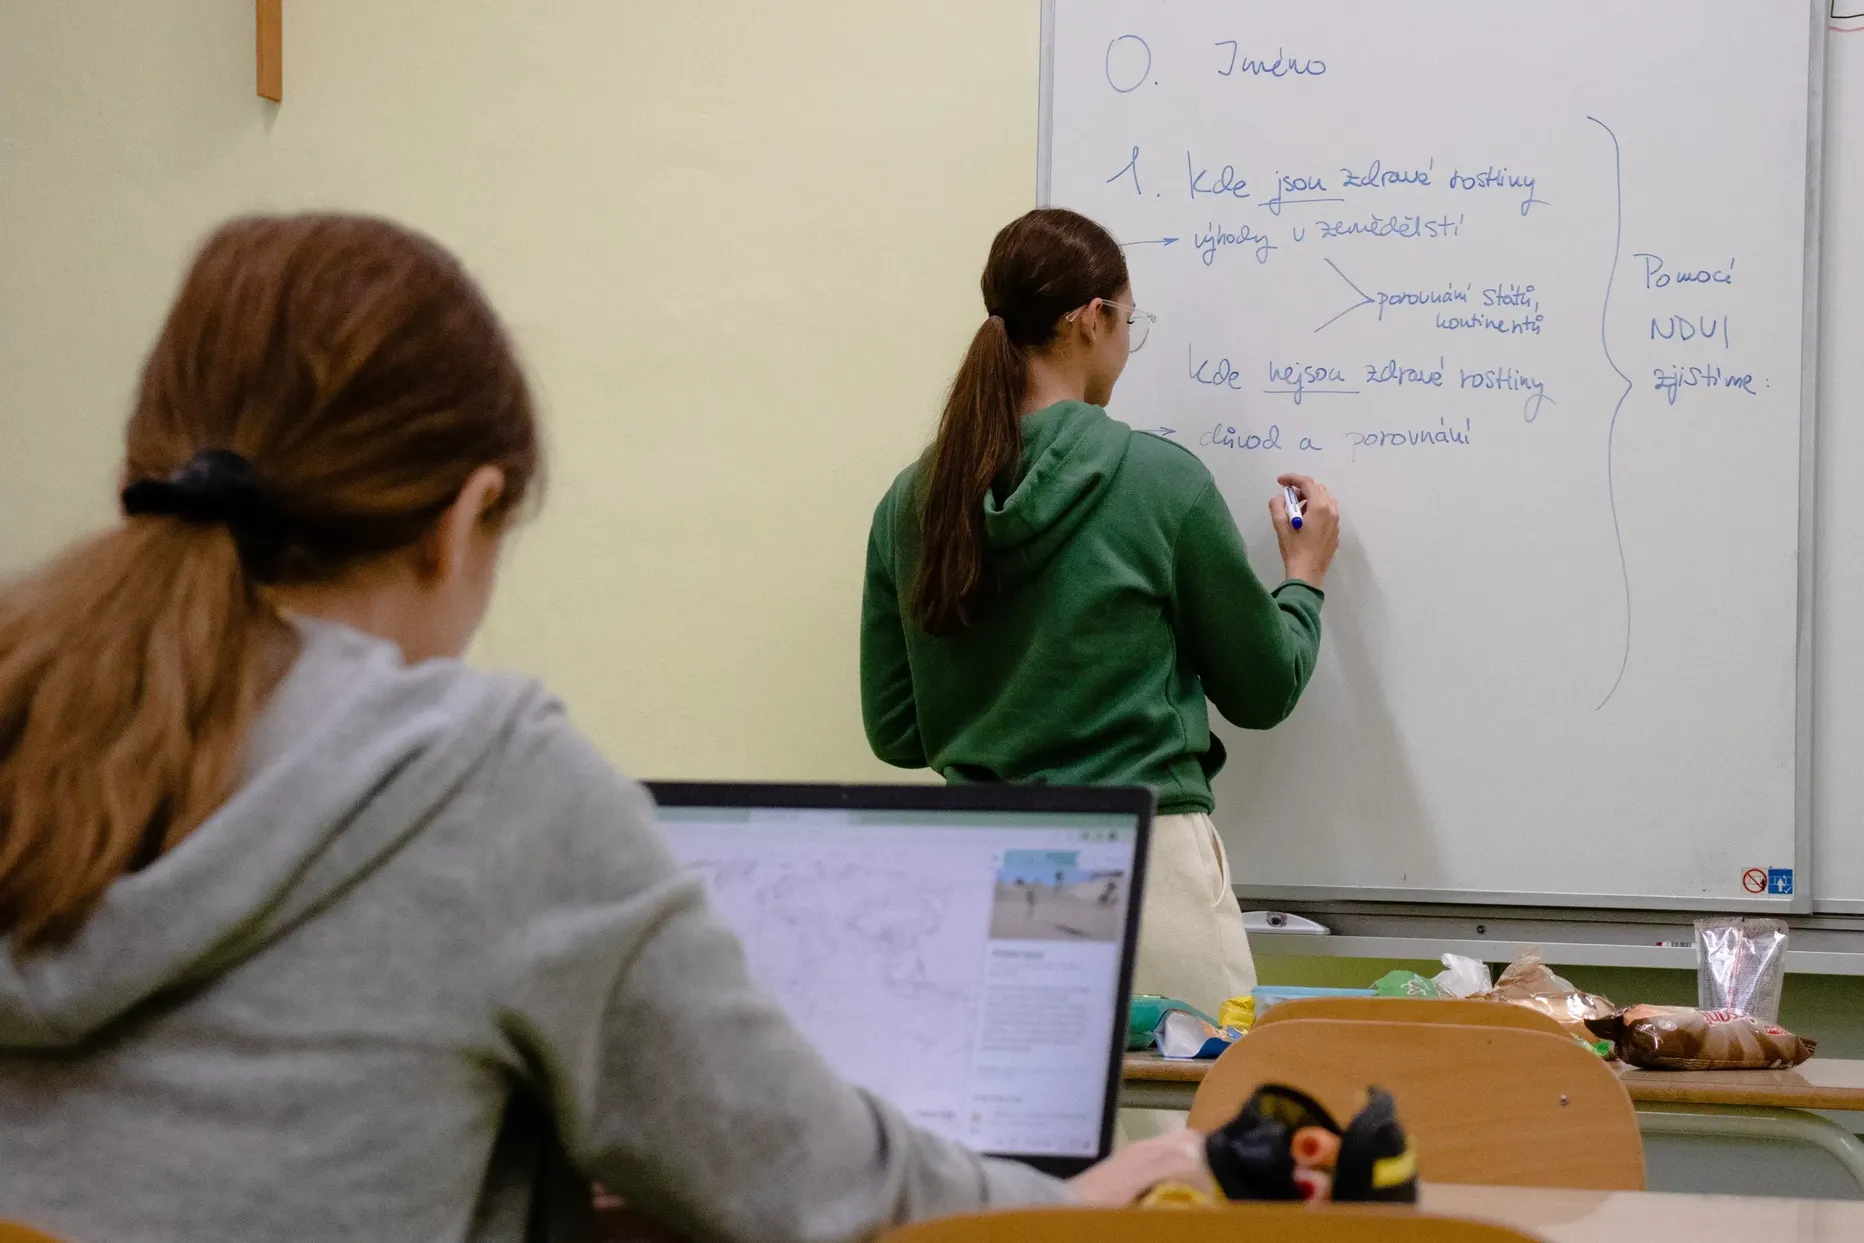 0. Jméno
1. Kde jsou zdravé rostliny
→ výhody v zemědělství
porovnání států,
kontinentů
Kde nejsou zdravé rostliny
→ důvod a porovnání
Pomocí
NDVI
zjistíme: